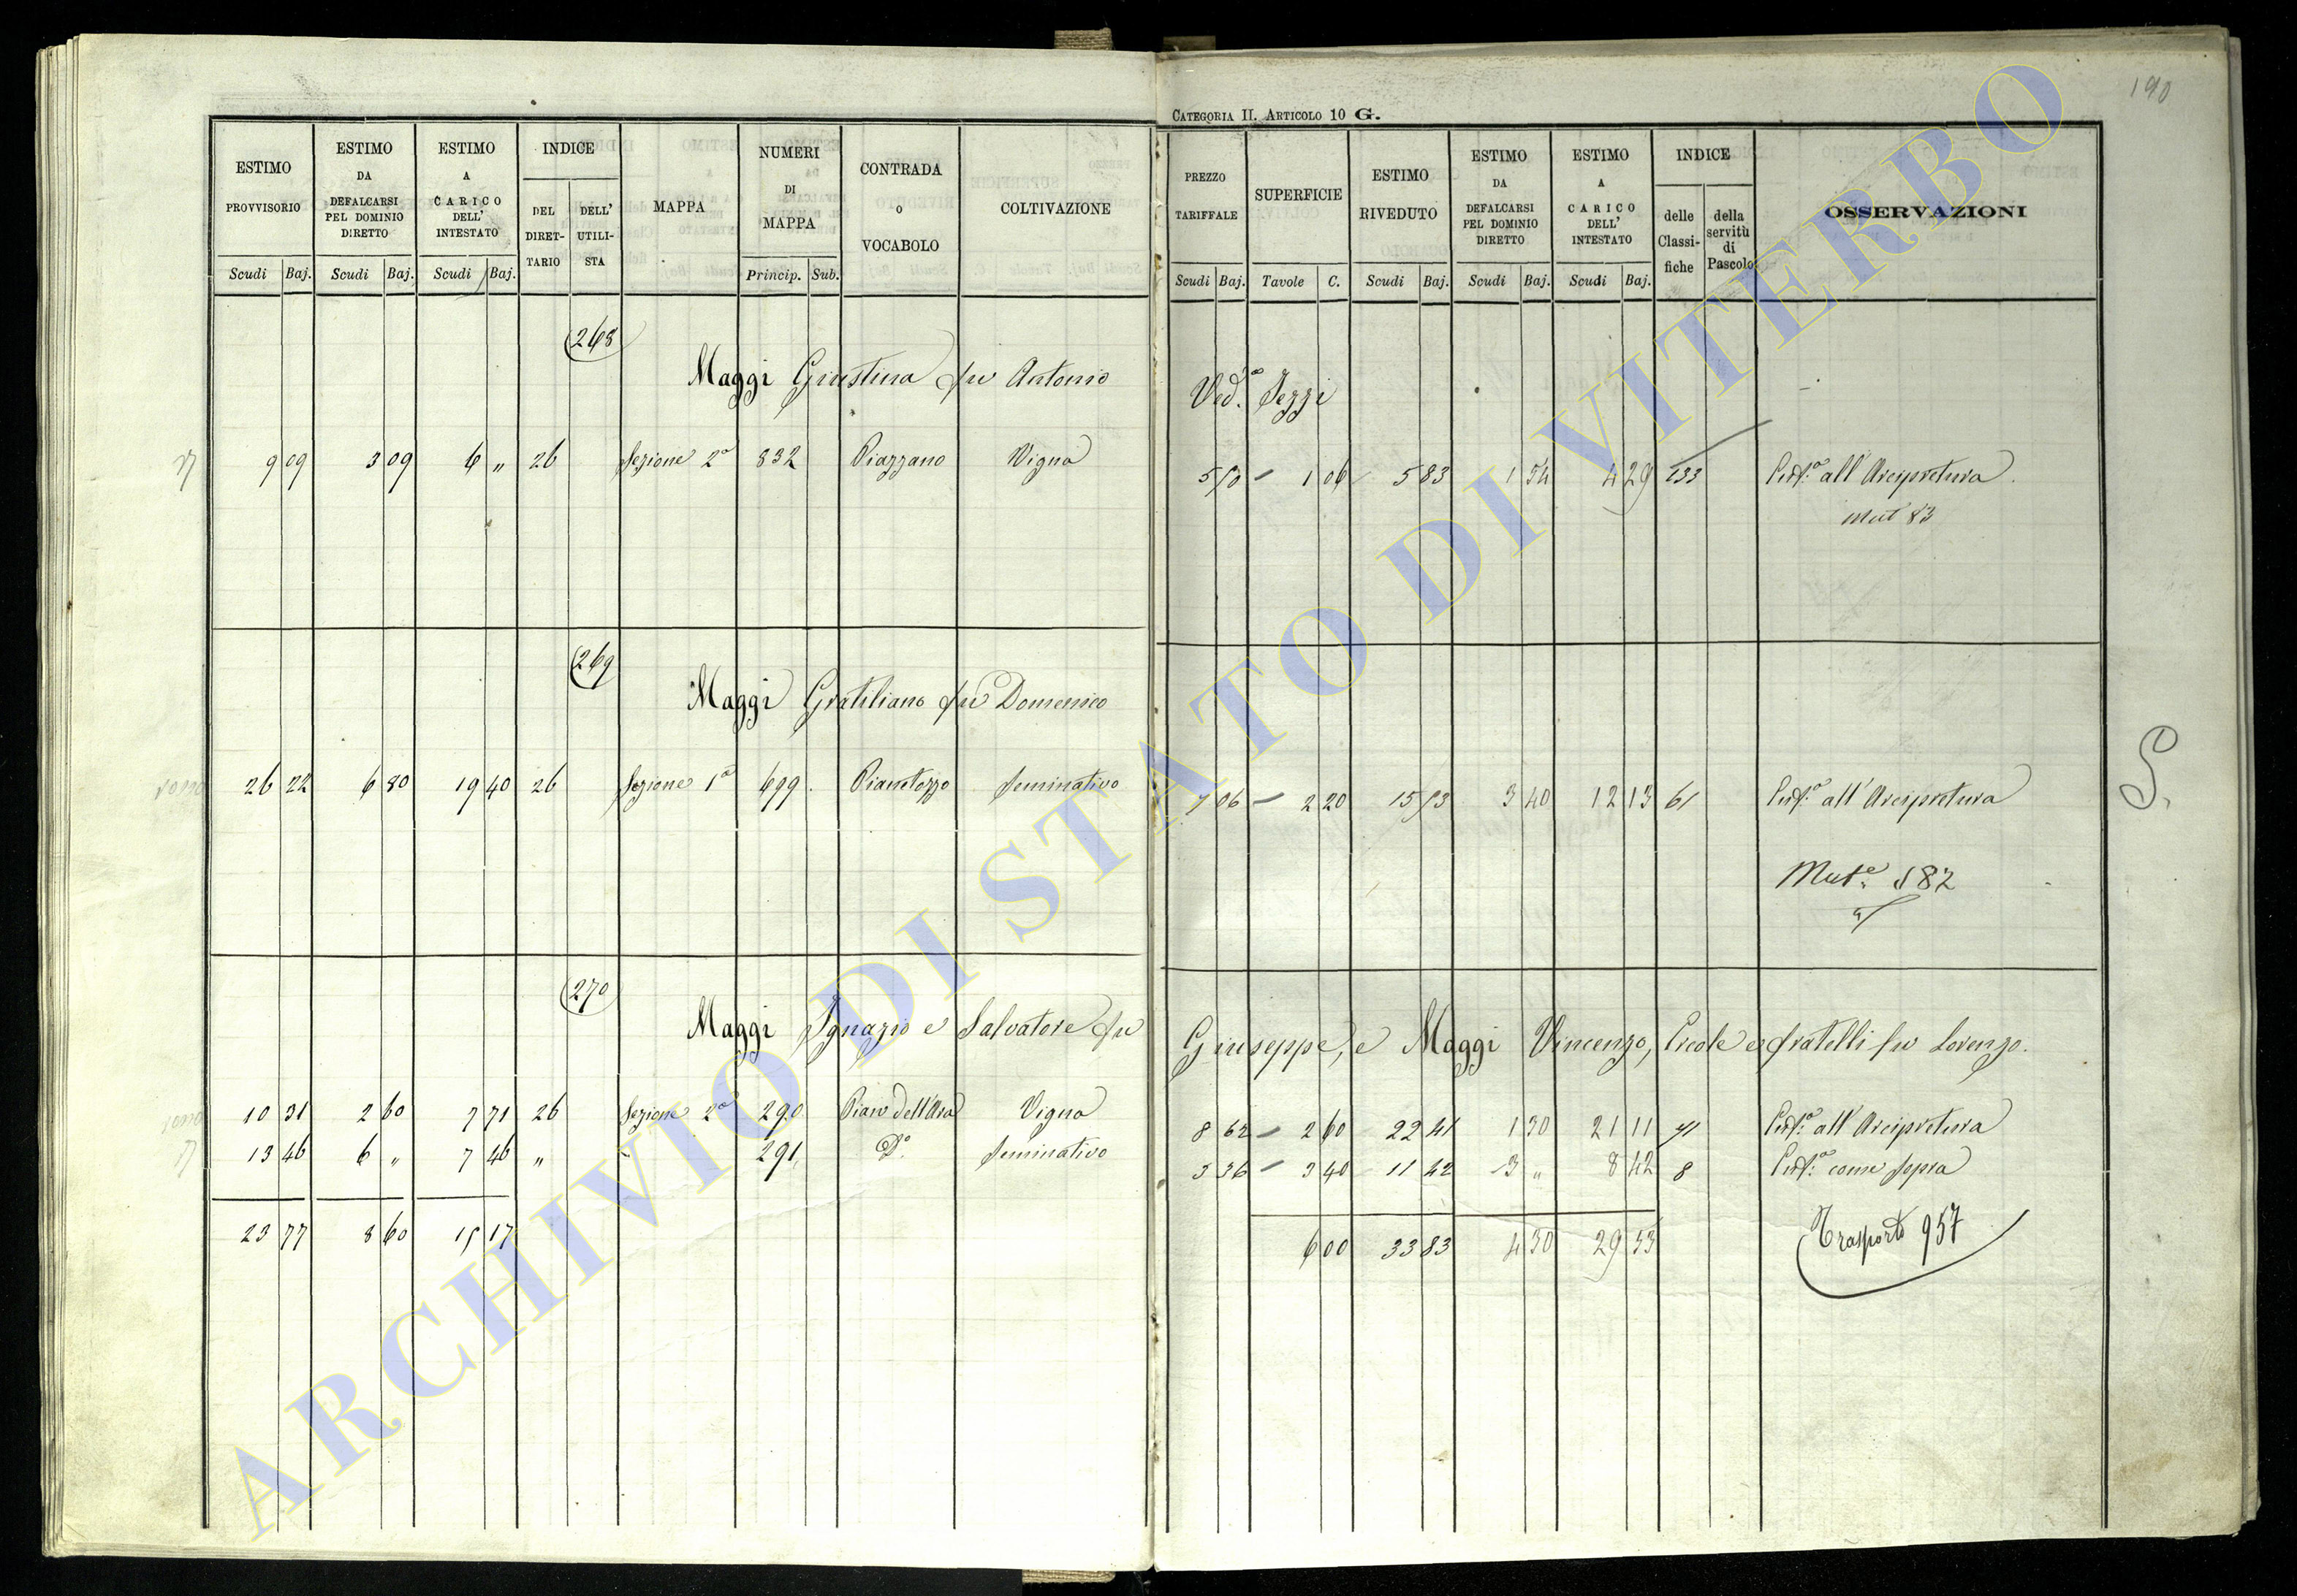 190
CATEGORIA II. ARTICOLO 10 G.
ESTIMO PROVVISORIO Scudi Baj.
ESTIMO DA DEFALCARSI PEL DOMINIO DIRETTO Scudi Baj.
ESTIMO A CARICO DELL' INTESTATO Scudi Baj.
INDICE DEL DIRETTARIO DELL' UTILISTA
MAPPA
NUMERI DI MAPPA Princip. Sub.
CONTRADA O VOCABOLO
COLTIVAZIONE
PREZZO TARIFFALE Scudi Baj.
SUPERFICIE Tavole C.
ESTIMO RIVEDUTO Scudi Baj.
ESTIMO DA DEFALCARSI PEL DOMINIO DIRETTO Scudi Baj.
ESTIMO A CARICO DELL' INTESTATO Scudi Baj.
INDICE delle Classifiche della servitù di Pascolo
OSSERVAZIONI
268
Maggi Giustina fu Antonio Ved.a
9 09 3 09 6 " 26 Sezione 2a 832 Piazzano Vigna 5 50 1 06 5 83 1 54 4 29 133 all'Arcipretura
Mut 83
269
Maggi Gratiliano fu Domenico
26 22 6 80 19 40 26 Sezione 1a 699 Pianetozzo Seminativo 7 06 2 20 15 53 3 40 12 13 61 all'Arcipretura
S.
Mut.e 182
270
Maggi Ignazio e Salvatore fu Giuseppe, e Maggi Vincenzo, Ercole e fratelli fu Lorenzo.
10 31 2 60 7 71 26 Sezione 2a 290 Piano dell'Ara Vigna 8 62 2 60 22 41 1 30 21 11 41 all'Arcipretura
13 46 6 " 7 46 " 291 D.o Seminativo 3 36 3 40 11 42 3 " 8 42 8 come sopra
23 77 8 60 15 17 6 00 33 83 4 30 29 53 Trasporto 957
ARCHIVIO DI STATO DI VITERBO